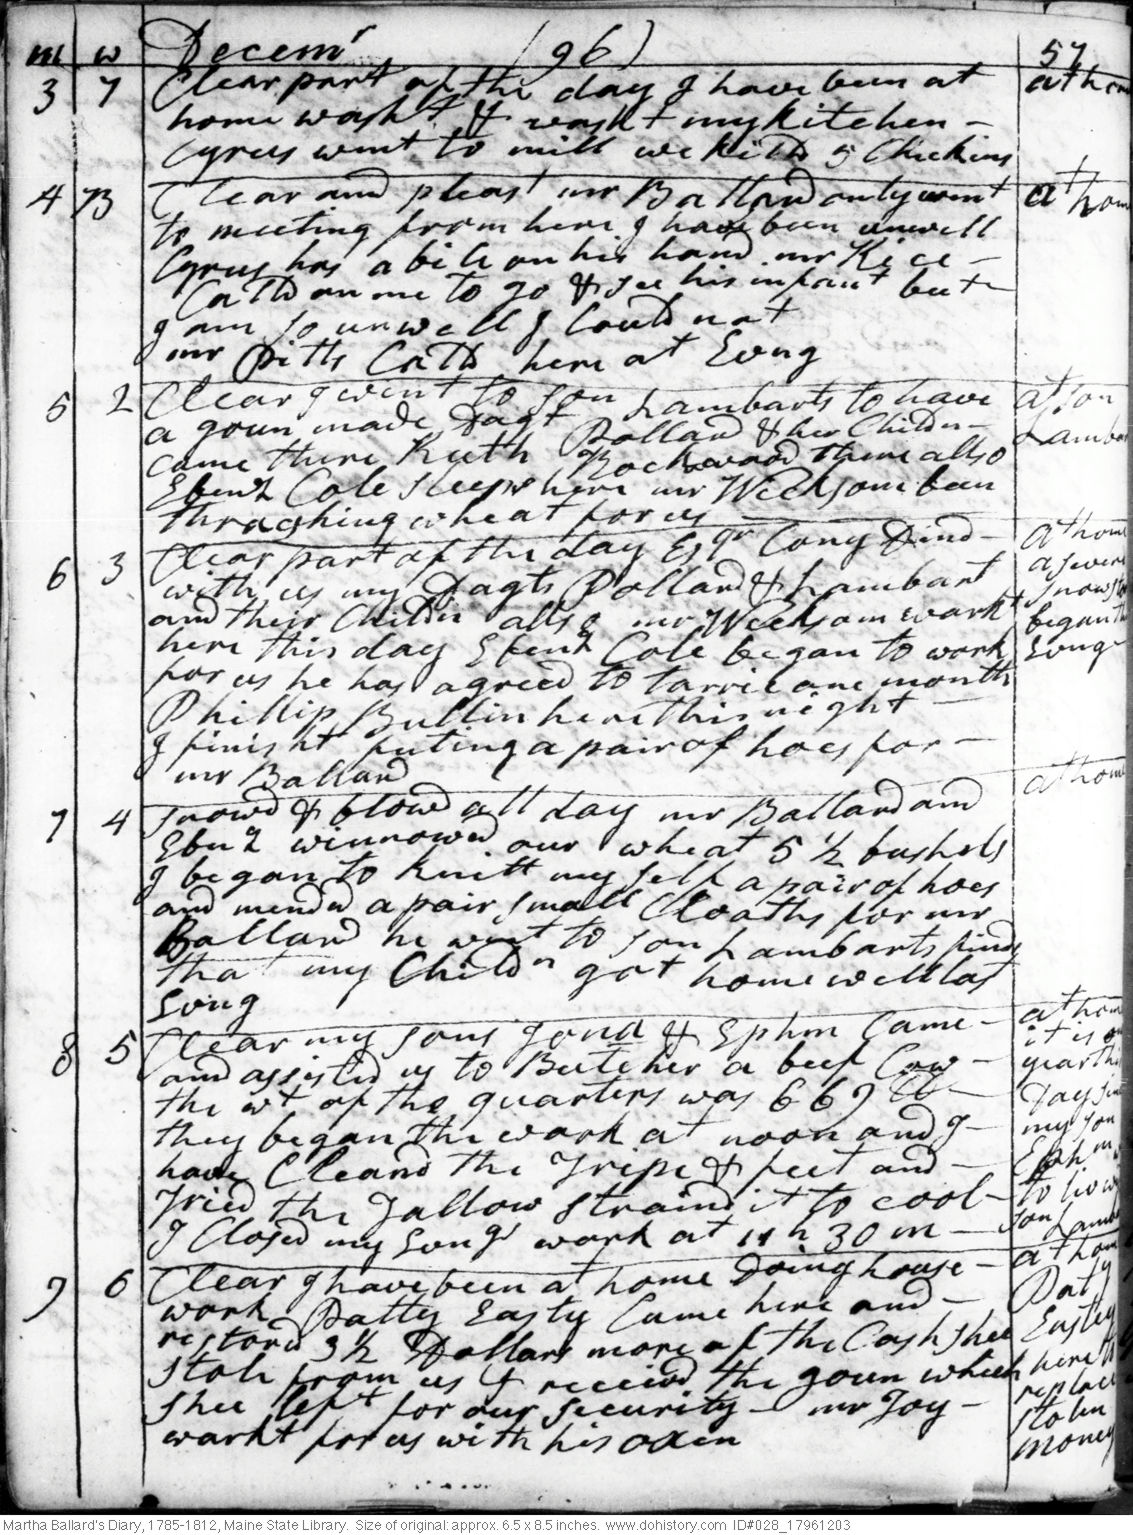 m w Decemr (96) 57
3 7 Clear part of the day I have been at at home
home washt & washt my kitchen -
Cyrus went to mill we killd 5 Chickins
4 B Clear and pleast mr Ballard only went at home
to meeting from here I have been unwell
Cyrus has a bile on his hand. mr Kice -
Calld on me to go & see his infant but -
I am so unwell I Could not
mr Pitts Calld here at Evng
5 2 Clear I went to son Lambarts to have at son
a goun made Dagt Pollard & her Childn - Lambarts
came there Ruth Rockwood there allso
Ebenz Cole sleeps here mr Wicksom been
thrashing wheat for us
6 3 Clear part of the day Esqr Cony Dind - at home
with us my Dagts Pollard & Lambart a severe
and their Childn allso mr Wicksom workt snow storm
here this day Ebenz Cole began to work began this
for us he has agreed to tarrie one month Evng
Phillip Bullin here this night -
I finisht futing a pair of hoes for -
mr Ballard
7 4 snowd & blowd all day mr Ballard and at home
Ebenz winnowed our wheat 5 1/2 bushels
I began to knitt my self a pair of hoes
and mended a pair small Cloaths for mr
Ballard he went to son Lambarts finds
that my Childn got home well last
Evng
8 5 Clear my sons Jona & Ephm Came - at home
and assisted us to Butcher a beef Cow - it is one
the wt of the quarters was 669 lb - year this
they began the work at noon and I - Day since
have Cleand the Tripe & feet and - my son
Tried the Tallow straind it to cool - Ephm
I Closed my Evngs work at 11 h 30 m - to live
son Lambarts
9 6 Clear I have been at home Doing house - at home
work Patty Easty Came here and - Paty
restord 3 1/2 Dollars more of the Cash shee Easty
stole from us & received the goun which here to
shee left for our security - mr Joy - replace
workt for us with his oxen stolen
money
Martha Ballard's Diary, 1785-1812, Maine State Library. Size of original: approx. 6.5 x 8.5 inches. www.dohistory.com ID#028_17961203